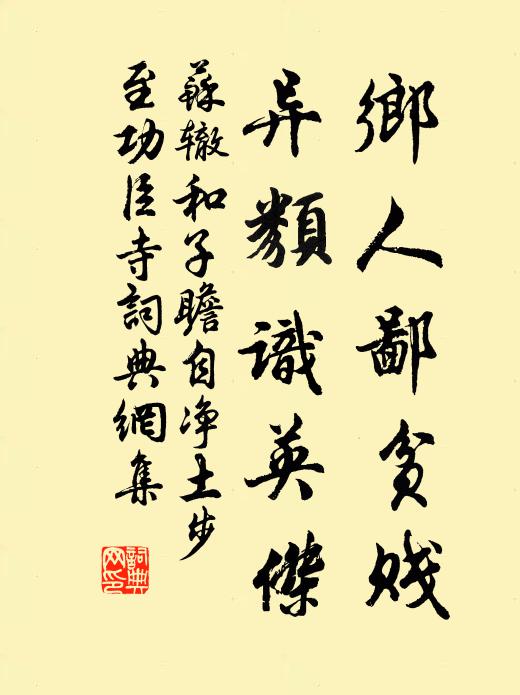 鄉人鄙貧賤
异類識英傑
蘇辙和子瞻自净土步
至功臣寺詞典網集
詞典网印